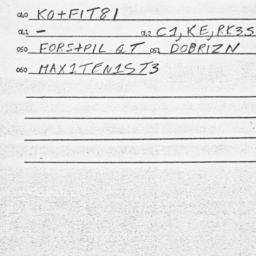 010 KO+FIT81
011 — 012 C1, KE, RK3.S
050 FORS+PIL G.T 052 DOBRIZN
060 MAX1TEN1ST3